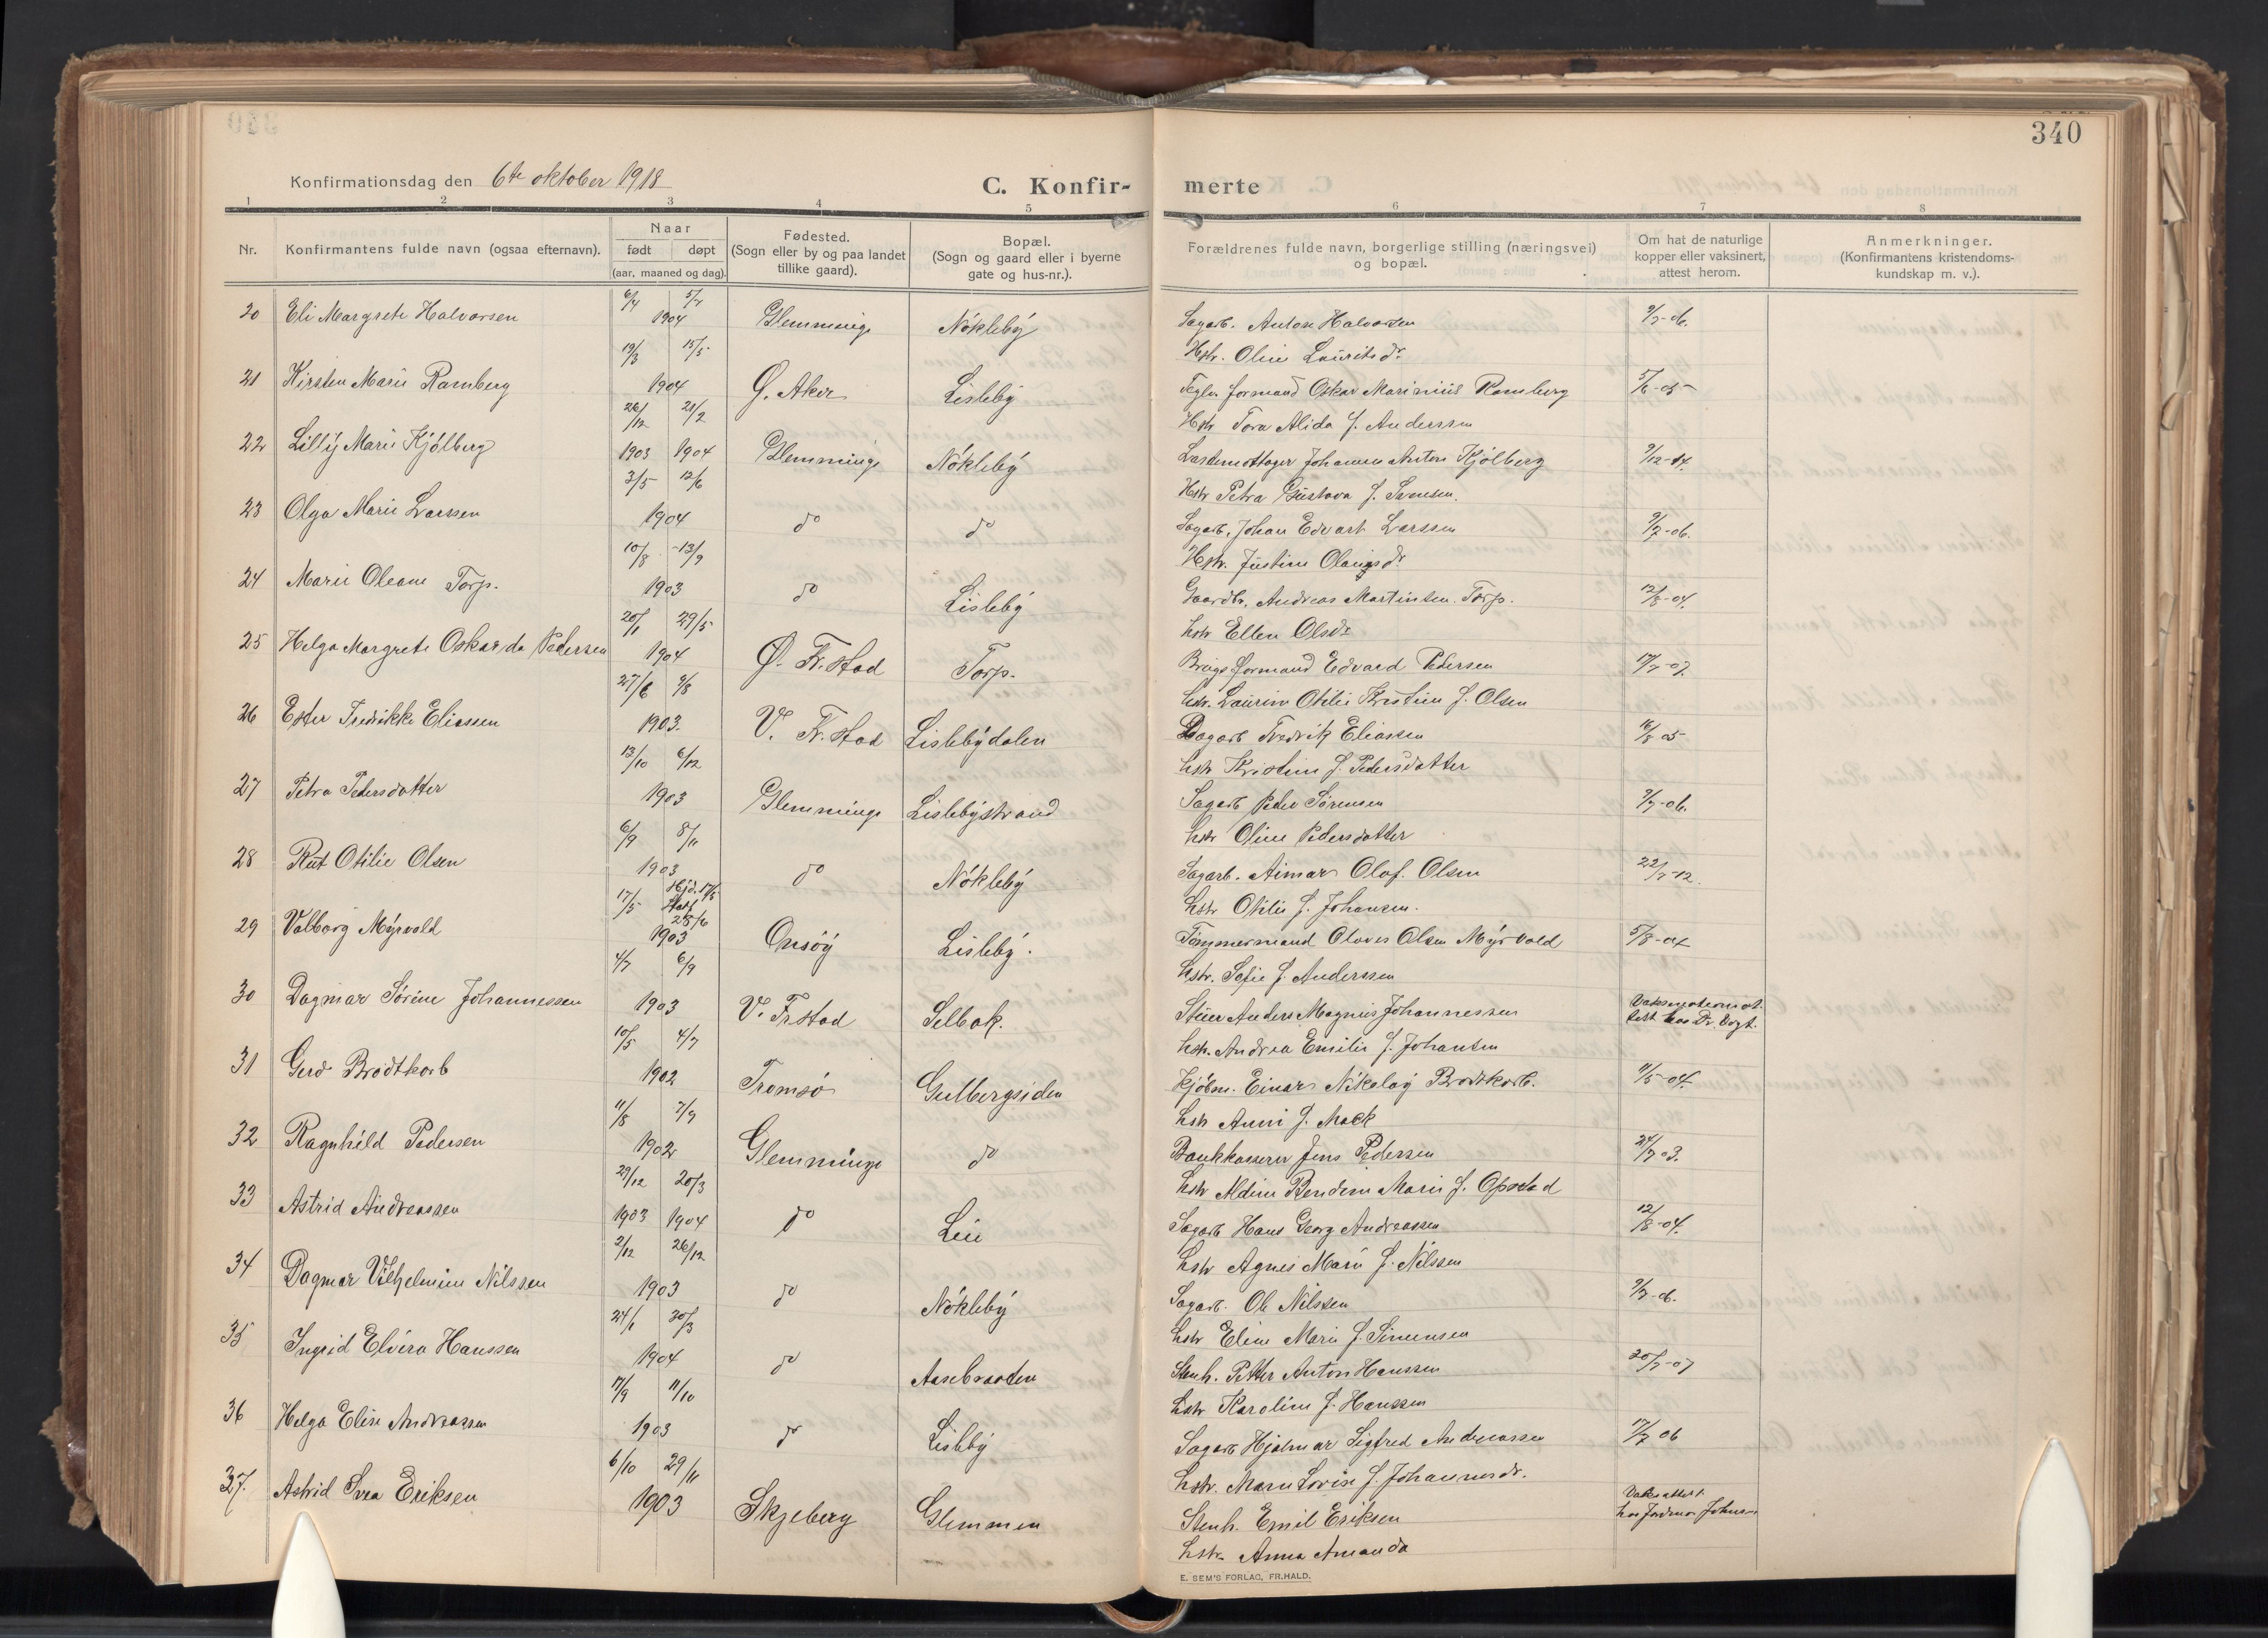 340
Konfirmationsdag den 6te oktober 1918
C. Konfir-
merte
1 2 3 4 5 6 7 8
Nr.
Konfirmantens fulde navn (ogsaa efternavn).
Naar
født døpt
(aar, maaned og dag).
Fødested.
(Sogn eller by og paa landet
tillike gaard).
Bopæl.
(Sogn og gaard eller i byerne
gate og hus-nr.).
Forældrenes fulde navn, borgerlige stilling (næringsvei)
og bopæl.
Om hat de naturlige
kopper eller vaksinert,
attest herom.
Anmerkninger.
(Konfirmantens kristendoms-
kundskap m. v.).
20 Eli Margrete Halvorsen 6/4 5/7 1904 Glemminge Nökleby Sagarb. Anton Halvorsen 9/7-06.
Hstr. Oline Lauritsdr
21 Kirsten Marie Ramberg 19/3 15/5 1904 Ö. Aker Lisleby Teglv. formand Oskar Marinius Ramberg 5/6-05
Hstr Tora Alida f. Anderssen
22 Lilly Marie Kjölberg 26/12 1903 21/2 1904 Glemminge Nökleby Lastemottager Johannes Anton Kjölberg 9/12-04.
Hstr Petra Gustava f.
23 Olga Marie Larssen 3/5 12/6 1904 do do Sagarb. Johan Edvart Larssen 9/7-06.
Hstr. Justine Olausdr
24 Marie Oleane Torp. 10/8 13/9 1903 do Lisleby Gaardbr. Andreas Martinsen Torp. 12/8-04.
hstr Ellen Olsdr
25 Helga Margrete Oskarda Pedersen 20/1 29/5 1904 Ø. Fr.stad Torp. Brugsformand Edvard Pedersen 17/7-07.
hstr. Laurine Otilie Kristine f. Olsen
26 Ester Fredrikke Eliassen 27/6 9/8 1903. V. Fr.stad Lislebydalen Sagarb Fredrik Eliassen 16/8 05
hstr Kristine f. Pedersdatter
27 Petra Pedersdatter 13/10 6/12 1903 Glemminge Lislebystrand Sagarb Peder Sørensen 9/7-06.
hstr Oline Pedersdatter
28 Rut Otilie Olsen 6/9 8/11 1903 do Nökleby Sagarb. Aimar Olaf Olsen 22/7-12.
hstr Otilie f. Johansen.
29 Valborg Myrvold 17/5 Hjd. 17/5 Stadf 28/6 1903 Onsöy Lisleby. Tömmermand Oloves Olsen Myrvold 5/8-04
hstr. Sofie f. Anderssen
30 Dagmar Sörine Johannessen 4/7 6/9 1903 V. Frstad Selbak. Stuer Anders Magnus Johannessen
hstr. Andrea Emilie f. Johansen
31 Gerd Brodtkorb 10/5 4/7 1902 Tromsö Gulbergsiden Kjöbm. Einar Nikolay Brodtkorb. 11/5-04.
hstr Anni f. Mack
32 Ragnhild Pedersen 11/8 7/9 1902 Glemminge do Bankkasserer Jens Pedersen 24/7 03.
hstr Aldine Bendine Marie f. Opstad
33 Astrid Andreassen 29/12 1903 20/3 1904 do Lie Sagarb Hans Georg Andreassen 12/8-04.
hstr Agnes Marie f. Nilssen
34 Dagmar Vilhelmine Nilssen 2/12 26/12 1903 do Nökleby Sagarb. Ole Nilssen 9/7-06.
hstr Eline Marie f. Simensen
35 Ingrid Elvira Hanssen 24/1 30/3 1904 do Aasebraaten Stenh. Petter Anton Hanssen 20/7-07
hstr Karoline f. Hanssen
36 Helga Elise Andreassen 17/9 11/10 1903 do Lisleby Sagarb Hjalmar Sigfred Andreassen 17/7 06
hstr. Marie Lovise f. Johannesdr.
37. Astrid Svea Eriksen 6/10 29/11 1903 Skjeberg Glemmen Stenh. Emil Eriksen Vaksattest hos Jordmor Johnsen
hstr. Anna Amanda
E. SEM'S FORLAG, FR.HALD.